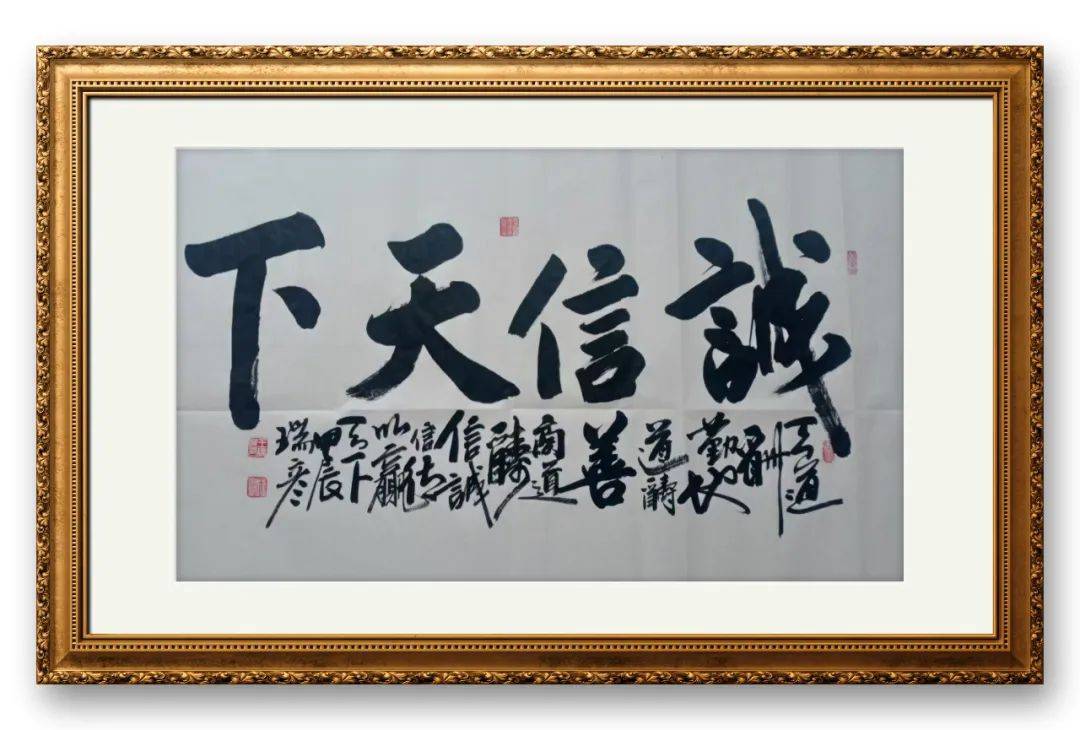 誠信天下
天道
酬
勤人
道酬
善
商道
酬
信誠
信
以贏
天下
甲辰
瑞彦